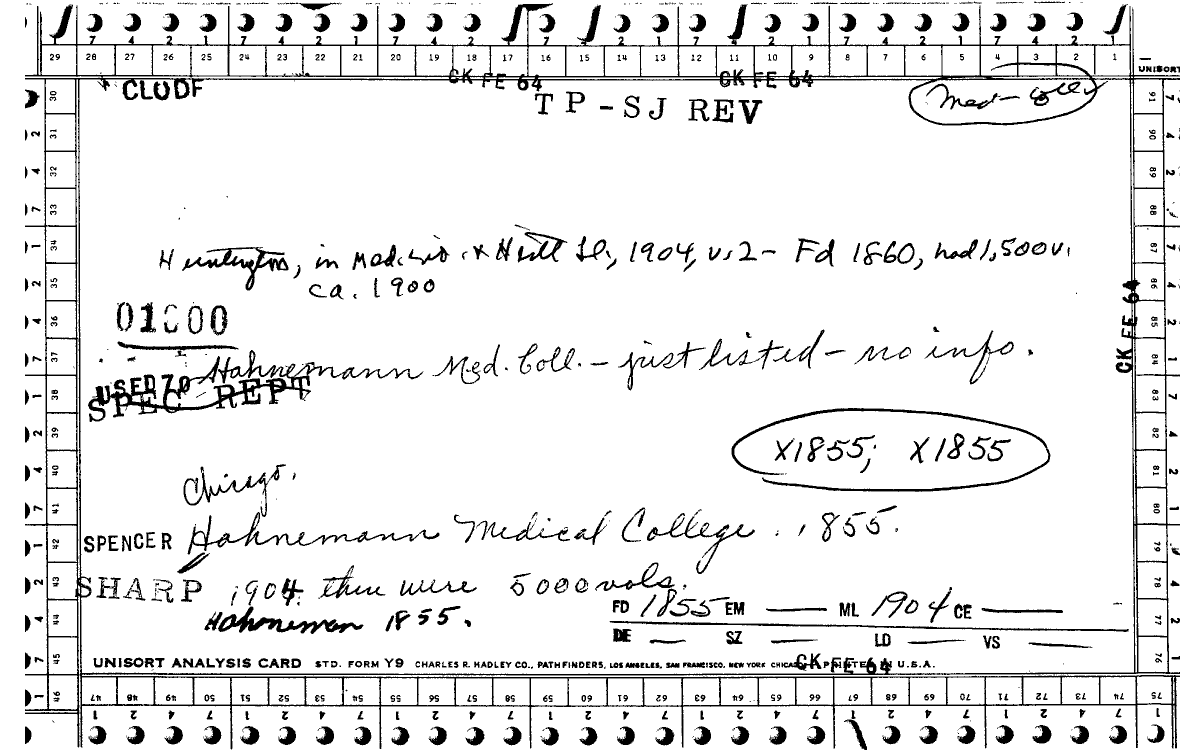 7 4 2 1 7 4 2 1 7 4 2 1 7 4 2 1 7 4 2 1 7 4 2 1 7 4 2 1
29 28 27 26 25 24 23 22 21 20 19 18 17 16 15 14 13 12 11 10 9 8 7 6 5 4 3 2 1
UNISORT
CLODF CK FE 64 CK FE 64
TP-SJ REV
Med-Coll
Huntington, in Med. & 1904, v.2 - Fd 1860, had 1,500v.
ca. 1900
01000
CK FE 64
Hahnemann Med. Coll. - just listed - no info.
USED 70
SPEC REPT
X1855; X1855
Chicago,
SPENCER Hahnemann Medical College. 1855.
SHARP 1904. there were 5000 vols.
Hahneman 1855.
FD 1855 EM — ML 1904 CE —
DE — SZ — LD — VS
UNISORT ANALYSIS CARD STD. FORM Y9 CHARLES R. HADLEY CO., PATHFINDERS, LOS ANGELES, SAN FRANCISCO, NEW YORK CHICAGO PRINTED IN U.S.A.
CK FE 64
47 48 49 50 51 52 53 54 55 56 57 58 59 60 61 62 63 64 65 66 67 68 69 70 71 72 73 74 75
1 2 4 7 1 2 4 7 1 2 4 7 1 2 4 7 1 2 4 7 1 2 4 7 1 2 4 7 1